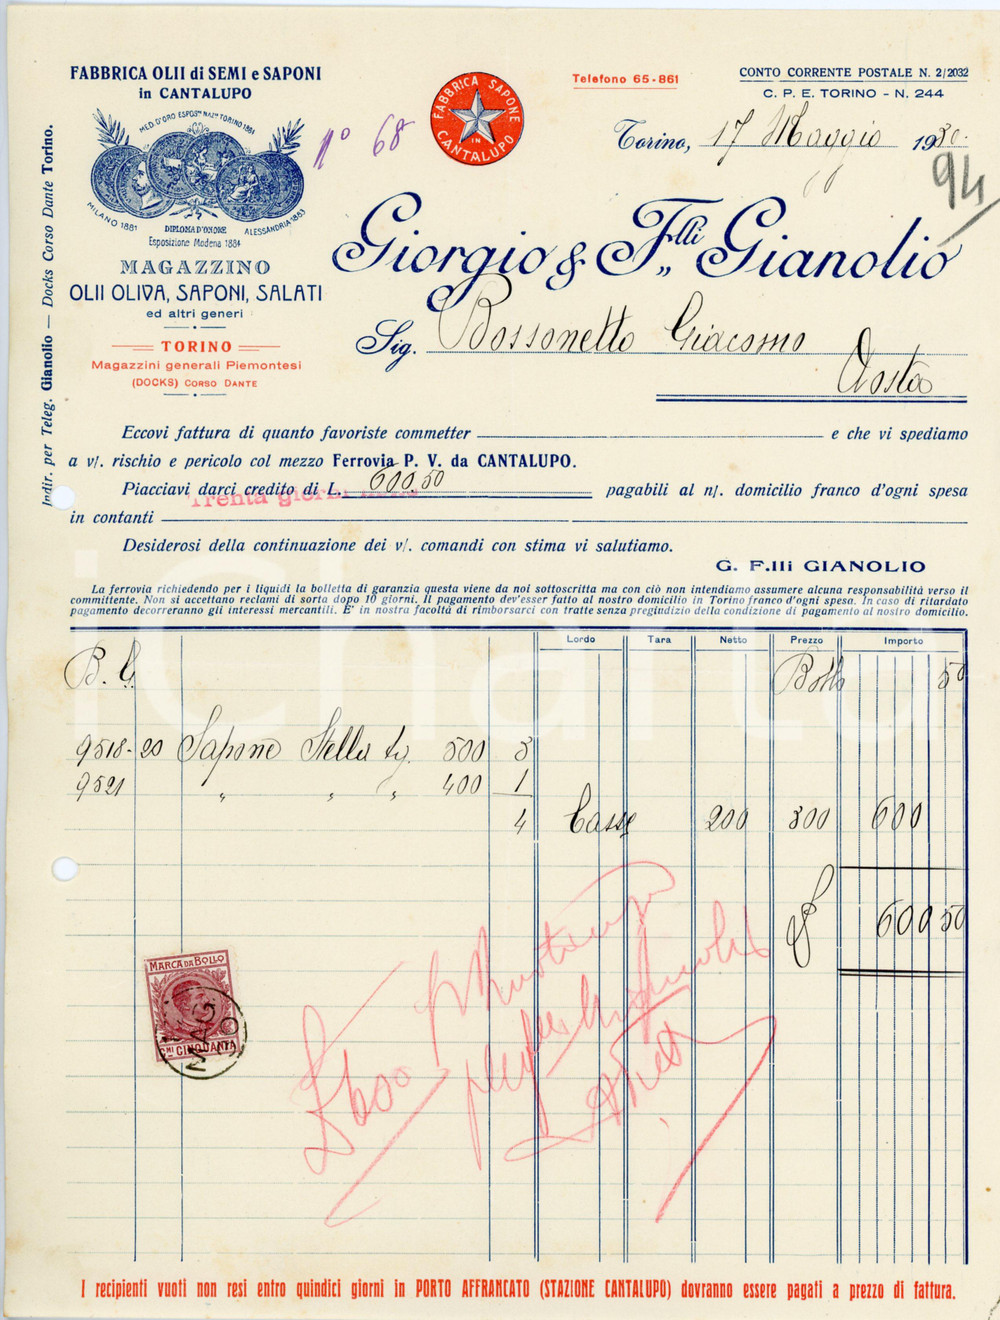 FABBRICA OLII di SEMI e SAPONI
in CANTALUPO
MED. D'ORO ESPOSne NAZle TORINO 1884
MILANO 1881
DIPLOMA D'ONORE
Esposizione Modena 1884
ALESSANDRIA 1883
MAGAZZINO
OLII OLIVA, SAPONI, SALATI
ed altri generi
TORINO
Magazzini generali Piemontesi
(DOCKS) CORSO DANTE
Indir. per Teleg. Gianolio — Docks Corso Dante Torino.
n° 68
FABBRICA SAPONE
IN
CANTALUPO
Telefono 65-861
CONTO CORRENTE POSTALE N. 2/2032
C. P. E. TORINO - N. 244
Torino, 17 Maggio 1930.
94
Giorgio & F.lli Gianolio
Sig. Bossonetto Giacomo
Aosta
Eccovi fattura di quanto favoriste commetter e che vi spediamo
a v/. rischio e pericolo col mezzo Ferrovia P. V. da CANTALUPO.
Piacciavi darci credito di L. 600,50 pagabili al n/. domicilio franco d'ogni spesa
Trenta giorni
in contanti
Desiderosi della continuazione dei v/. comandi con stima vi salutiamo.
G. F.lli GIANOLIO
La ferrovia richiedendo per i liquidi la bolletta di garanzia questa viene da noi sottoscritta ma con ciò non intendiamo assumere alcuna responsabilità verso il
committente. Non si accettano reclami di sorta dopo 10 giorni. Il pagamento dev'esser fatto al nostro domicilio in Torino franco d'ogni spesa. In caso di ritardato
pagamento decorreranno gli interessi mercantili. E' in nostra facoltà di rimborsarci con tratte senza pregiudizio della condizione di pagamento al nostro domicilio.
Lordo Tara Netto Prezzo Importo
B. G. Bollo 50
9518-20 Sapone Stella 500 3
9521 " " " 400 1
4 Casse 200 300 600
600 50
MARCA DA BOLLO
CMI CINQUANTA
MAG
£600
iCharta
I recipienti vuoti non resi entro quindici giorni in PORTO AFFRANCATO (STAZIONE CANTALUPO) dovranno essere pagati a prezzo di fattura.